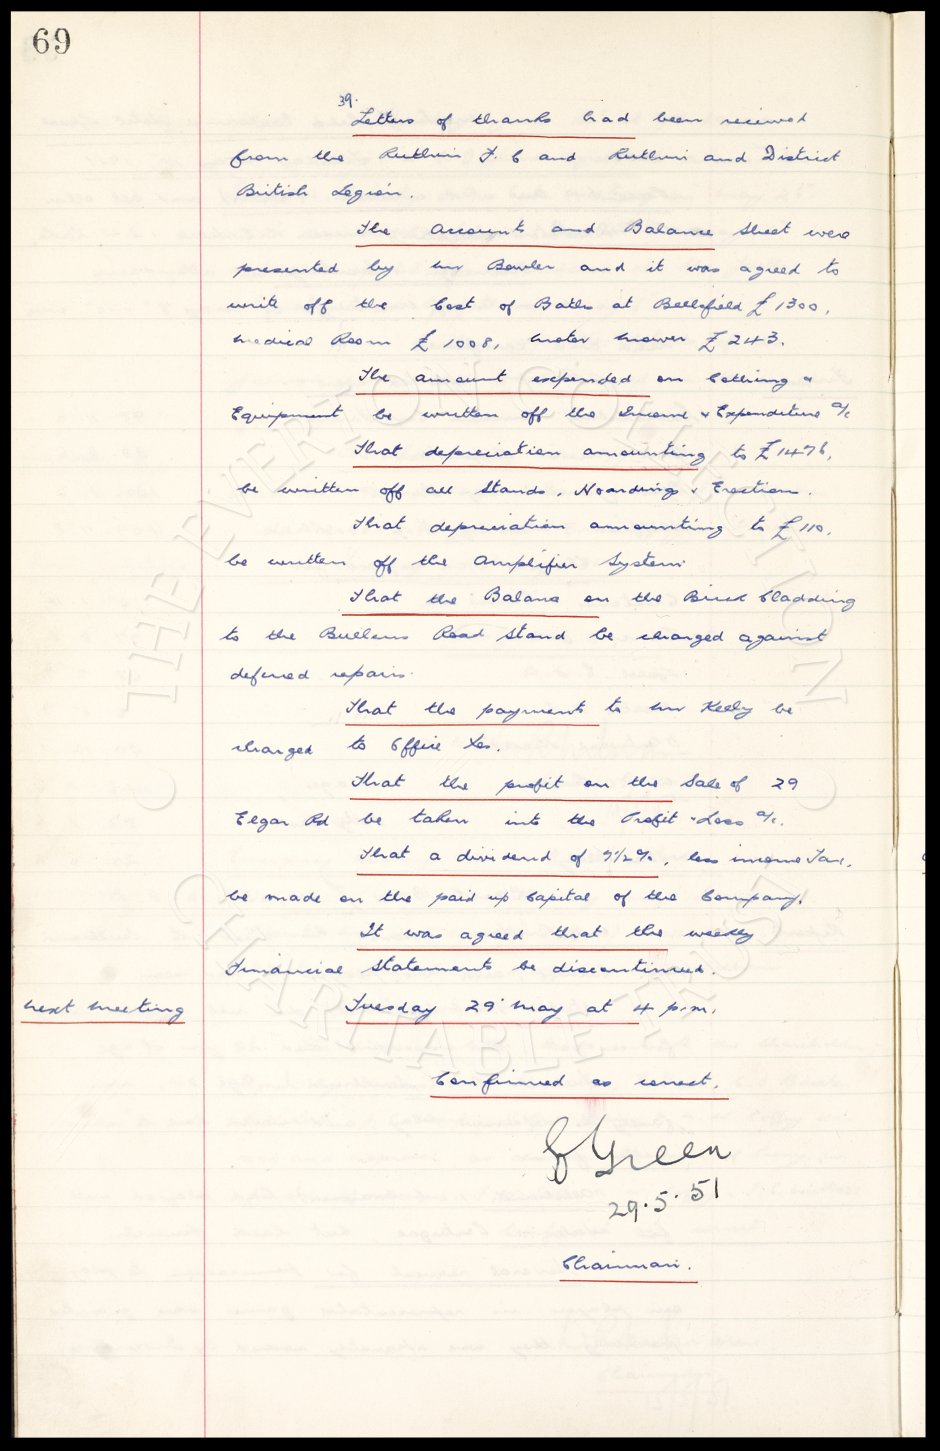 69
39.
Letters of thanks had been received
from the Ruthin F.C and Ruthin and District
British Legion.
The Accounts and Balance Sheet were
presented by Mr Bowler and it was agreed to
write off the Cost of Baths at Bellefield £1300,
Medical Room £1008, Motor Mower £243.
The amount expended on Clothing &
Equipment be written off the Income & Expenditure a/c
That depreciation amounting to £1476,
be written off all Stands, Hoardings & Erections.
That depreciation amounting to £110,
be written off the Amplifier System.
That the Balance on the Brick Cladding
to the Bullens Road Stand be charged against
deferred repairs.
That the payments to Mr Kelly be
charged to Office Xes.
That the profit on the Sale of 29
Elgar Rd be taken into the Profit & Loss a/c.
That a dividend of 7 1/2 %, less income Tax,
be made on the paid up Capital of the Company.
It was agreed that the weekly
Financial Statements be discontinued.
Next Meeting Tuesday 29 May at 4 p.m.
Confirmed as correct.
C Green
29.5.51
Chairman.
THE EVERTON COLLECTION
CHARITABLE TRUST